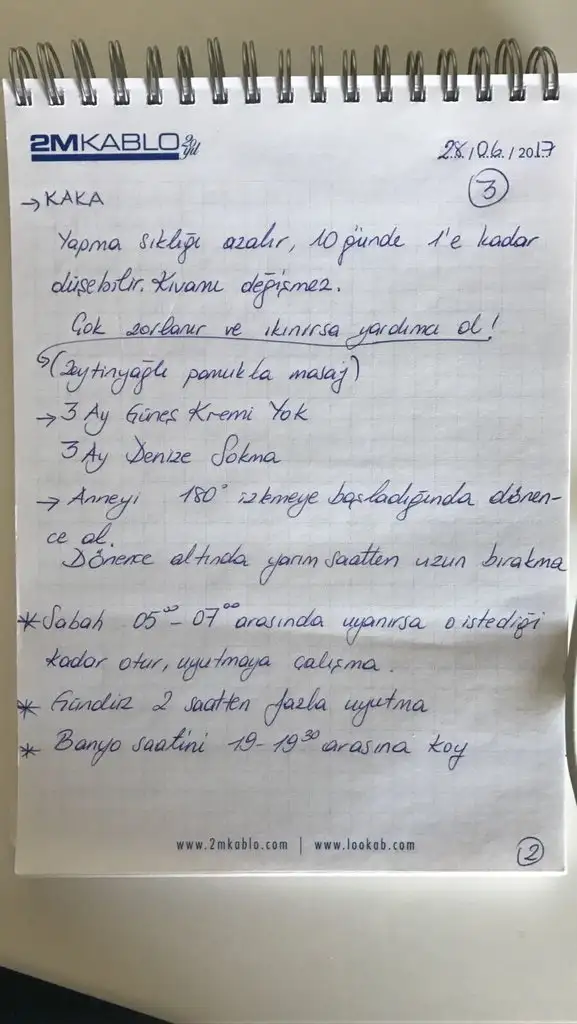 2MKABLO 20. yıl
28/06/2017
3
→ KAKA
Yapma sıklığı azalır, 10 günde 1'e kadar
düşebilir. Kıvamı değişmez.
Çok zorlanır ve ıkınırsa yardımcı ol!
(zeytinyağlı pamukla masaj)
→ 3 Ay Güneş Kremi Yok
3 Ay Denize Sokma
→ Anneyi 180° izlemeye başladığında dönen-
ce al.
Dönence altında yarım saatten uzun bırakma
* Sabah 05⁰⁰ - 07⁰⁰ arasında uyanırsa o istediği
kadar otur, uyutmaya çalışma.
* Gündüz 2 saatten fazla uyutma
* Banyo saatini 19-19³⁰ arasına koy
www.2mkablo.com | www.lookab.com
2